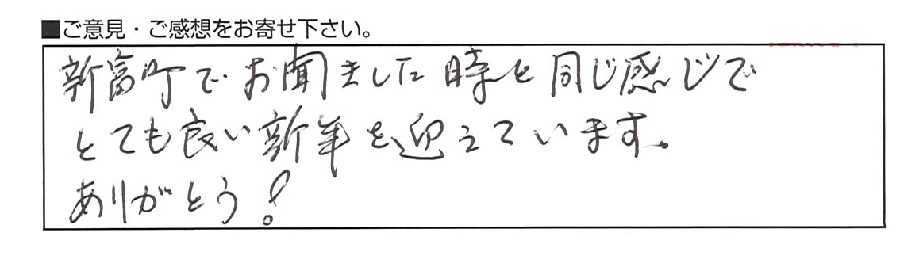 ■ご意見・ご感想をお寄せ下さい。
新富町でお聞ました時と同じ感じで
とても良い新年を迎えています。
ありがとう！